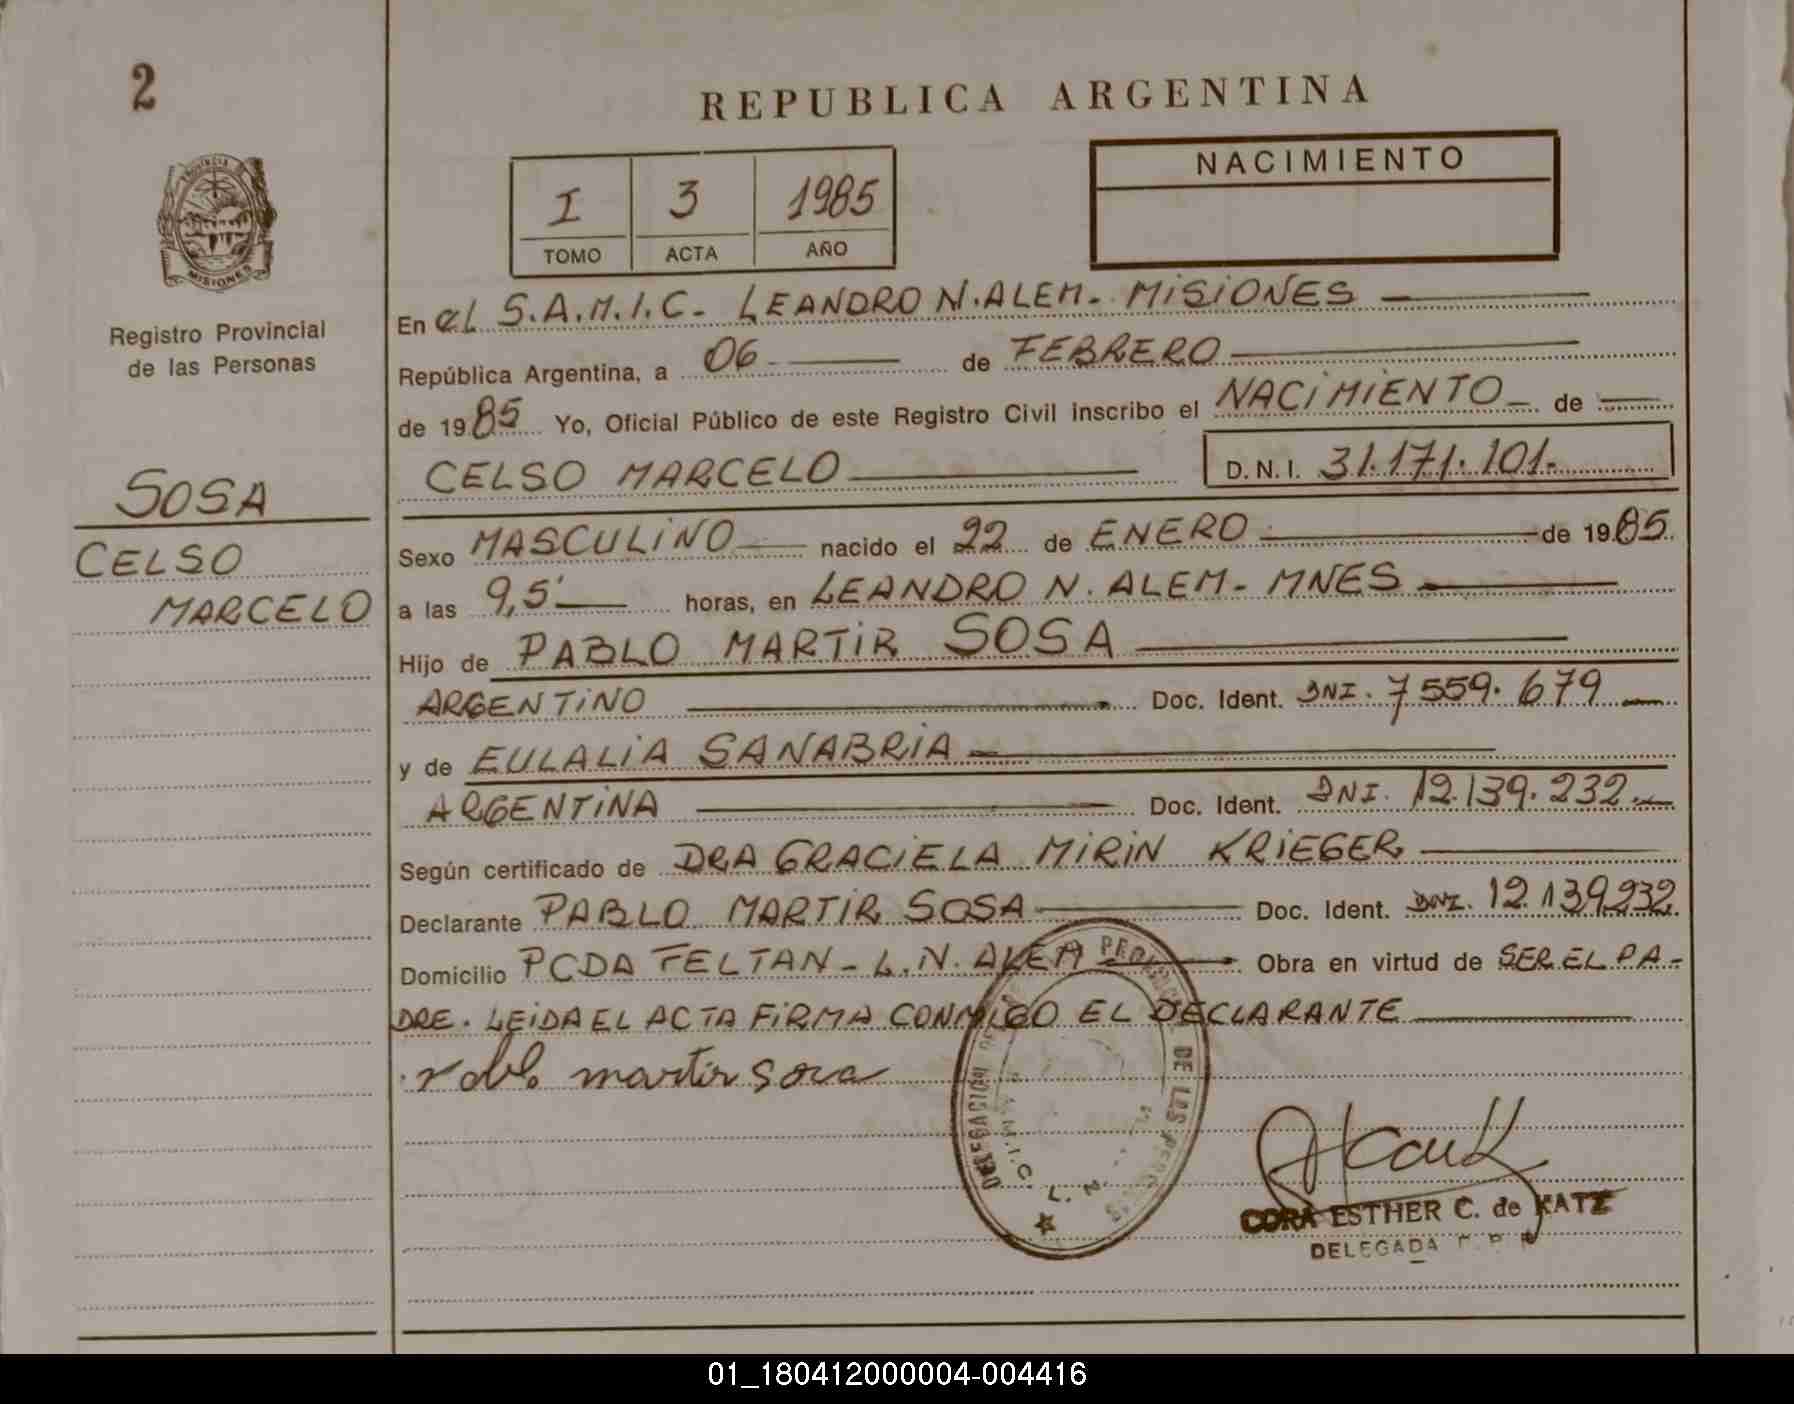 2
REPUBLICA ARGENTINA
NACIMIENTO
I 3 1985
TOMO ACTA AÑO
PROVINCIA
MISIONES
Registro Provincial
de las Personas
SOSA
CELSO
MARCELO
En el S.A.M.I.C. LEANDRO N. ALEM - MISIONES
República Argentina, a 06 de FEBRERO
de 1985 Yo, Oficial Público de este Registro Civil inscribo el NACIMIENTO de
CELSO MARCELO D.N.I. 31.171.101.
Sexo MASCULINO nacido el 22 de ENERO de 1985
a las 9,5' horas, en LEANDRO N. ALEM - MNES
Hijo de PABLO MARTIR SOSA
ARGENTINO Doc. Ident. DNI. 7559.679
y de EULALIA SANABRIA
ARGENTINA Doc. Ident. DNI. 12.139.232
Según certificado de DRA GRACIELA MIRIN KRIEGER
Declarante PABLO MARTIR SOSA Doc. Ident. DNI. 12.139232
Domicilio PCDA FELTAN - L.N. ALEM Obra en virtud de SER EL PA-
DRE. LEIDA EL ACTA FIRMA CONMIGO EL DECLARANTE
martir sosa
DELEGACION DE LAS
CORA ESTHER C. de KATZ
DELEGADA
01_180412000004-004416